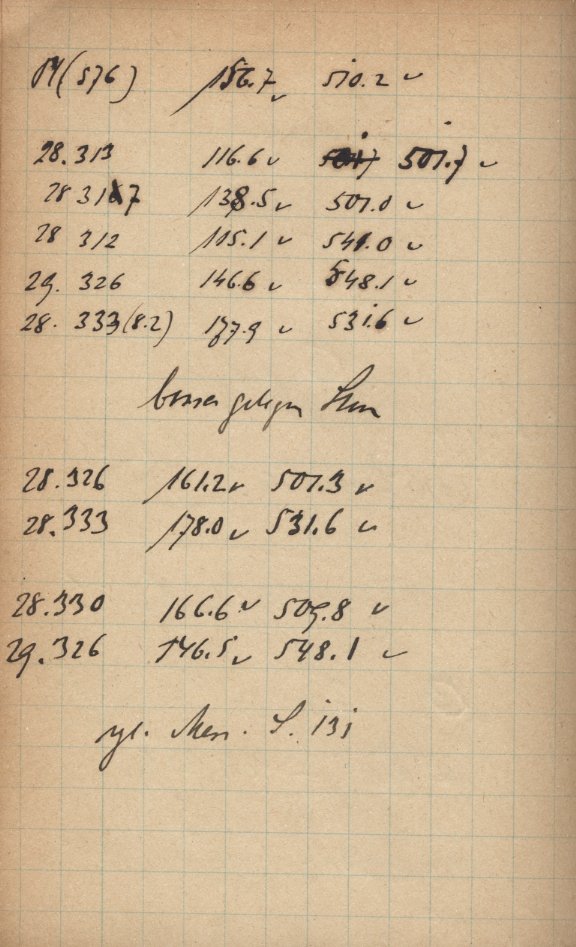 (576) 156.7 510.2 ✓
28.313 116.6 ✓ 501.7 ✓
28 317 138.5 ✓ 501.0 ✓
28 312 105.1 ✓ 541.0 ✓
29. 326 146.6 ✓ 548.1 ✓
28. 333 (8.2) 177.9 ✓ 531.6 ✓
besser gelegen
28.326 161.2 ✓ 501.3 ✓
28.333 178.0 ✓ 531.6 ✓
28.330 166.6 ✓ 509.8 ✓
29.326 146.5 ✓ 548.1 ✓
S.